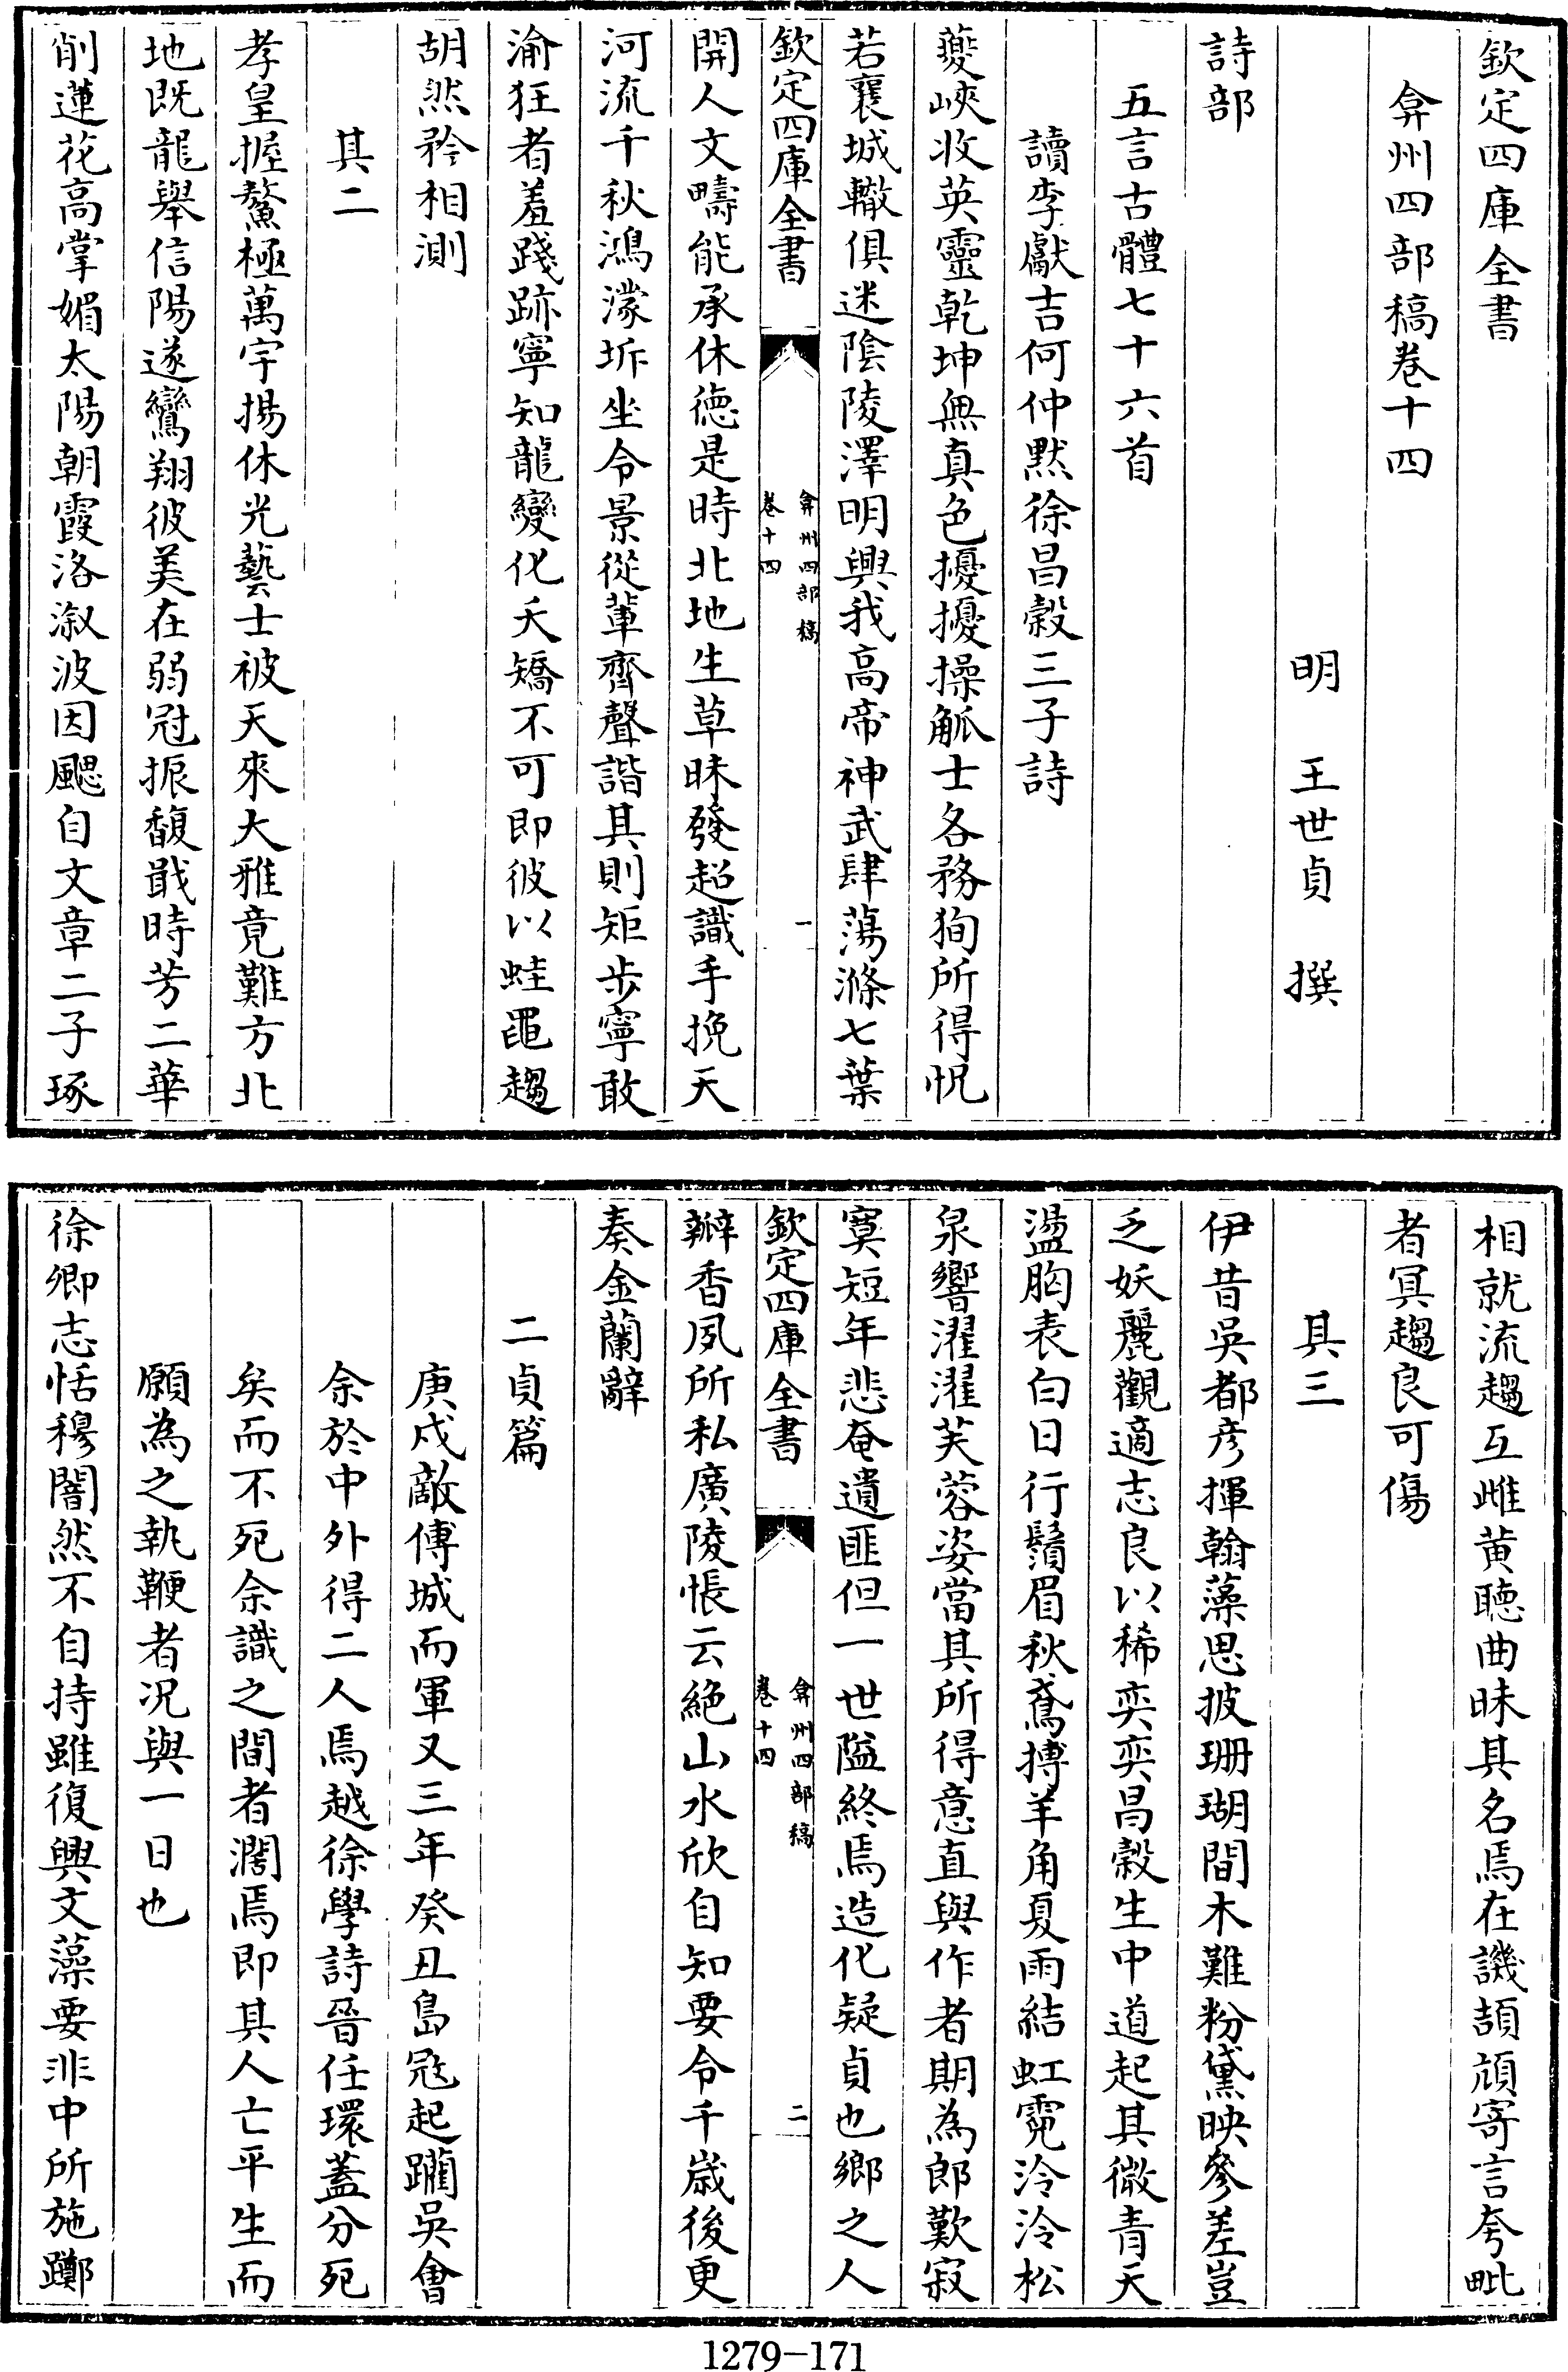 欽定四庫全書
弇州四部稿卷十四
明　王世貞　撰
詩部
五言古體七十六首
讀李獻吉何仲默徐昌穀三子詩
夔峽收英靈乾坤無真色擾擾操觚士各務狥所得怳
若襄城轍俱迷陰陵澤明興我高帝神武肆蕩滌七葉
欽定四庫全書
弇州四部稿
卷十四
一
開人文疇能承休德是時北地生草昧發超識手挽天
河流千秋鴻濛坼坐令景從輩齊聲諧其則矩步寧敢
渝狂者羞踐跡寧知龍變化夭矯不可即彼以蛙黽趨
胡然矜相測
其二
孝皇握鰲極萬宇揚休光藝士被天來大雅竟難方北
地既龍舉信陽遂鸞翔彼美在弱冠振馥戢時芳二華
削蓮花高掌媚太陽朝霞洛溆波因颸自文章二子琢
相就流趨互雌黄聴曲昧其名焉在譏頡頏寄言夸毗
者冥趨良可傷
其三
伊昔吳都彦揮翰藻思披珊瑚間木難粉黛映參差豈
乏妖麗觀適志良以稀奕奕昌穀生中道起其微青天
盪胸表白日行鬚眉秋鳶搏羊角夏雨結虹霓泠泠松
泉響濯濯芙蓉姿當其所得意直與作者期為郎歎寂
寞短年悲奄遺匪但一世隘終焉造化疑貞也鄉之人
欽定四庫全書
弇州四部稿
卷十四
二
辦香夙所私廣陵悵云絶山水欣自知要令千歳後更
奏金蘭辭
二貞篇
庚戍敵傅城而軍又三年癸丑島冦起躪吳會
余於中外得二人焉越徐學詩晉任環蓋分死
矣而不死余識之間者濶焉即其人亡平生而
願為之執鞭者况與一日也
徐卿志恬穆闇然不自持雖復興文藻要非中所施躑
1279-171